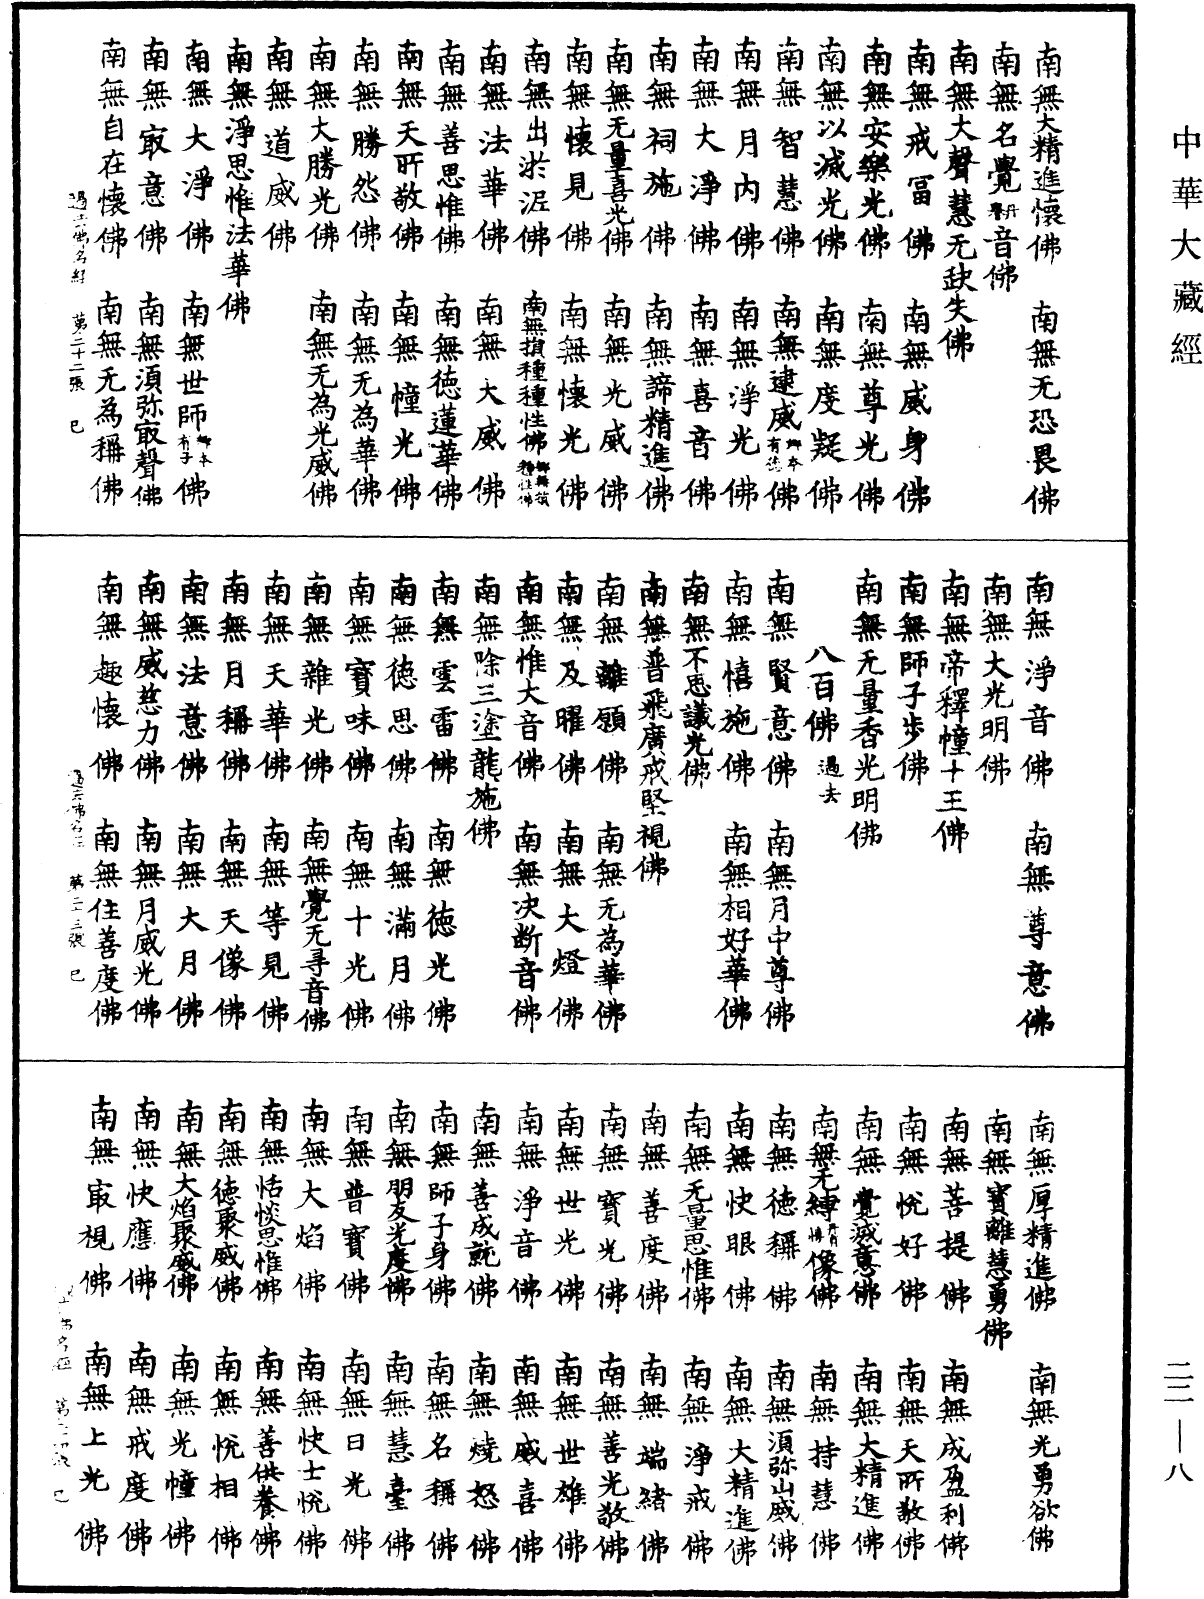 中華大藏經
南無大精進懷佛　南無无恐畏佛
南無名覺音佛
南無大聲慧无缺失佛
南無戒富佛　南無威身佛
南無安樂光佛　南無尊光佛
南無以滅光佛　南無度疑佛
南無智慧佛　南無逮威佛
南無月内佛　南無淨光佛
南無大淨佛　南無喜音佛
南無祠施佛　南無諦精進佛
南無无量喜光佛　南無光威佛
南無懷見佛　南無懷光佛
南無出淤泥佛　南無損種種性佛
南無法華佛　南無大威佛
南無善思惟佛　南無德蓮華佛
南無天所敬佛　南無幢光佛
南無勝怨佛　南無无為華佛
南無大勝光佛　南無无為光威佛
南無道威佛
南無淨思惟法華佛
南無大淨佛　南無世師佛
南無寂意佛　南無須弥寂聲佛
南無自在懷佛　南無无為稱佛
第二十二張　巳
南無淨音佛　南無尊意佛
南無大光明佛
南無帝釋幢十王佛
南無師子步佛
南無无量香光明佛
八百佛過去
南無賢意佛　南無月中尊佛
南無憘施佛　南無相好華佛
南無不思議光佛
南無普飛廣戒堅視佛
南無離願佛　南無无為華佛
南無及曜佛　南無大燈佛
南無惟大音佛　南無决断音佛
南無除三塗龍施佛
南無雲雷佛　南無德光佛
南無德思佛　南無滿月佛
南無寶味佛　南無十光佛
南無雜光佛　南無覺无尋音佛
南無天華佛　南無等見佛
南無月稱佛　南無天像佛
南無法意佛　南無大月佛
南無威慈力佛　南無月威光佛
南無趣懷佛　南無住善度佛
第二十三張　巳
南無厚精進佛　南無光勇欲佛
南無寶離慧勇佛
南無菩提佛　南無成盈利佛
南無悅好佛　南無天所敬佛
南無覺滅意佛　南無大精進佛
南無无縛像佛　南無持慧佛
南無德稱佛　南無須弥山威佛
南無快眼佛　南無大精進佛
南無无量思惟佛　南無淨戒佛
南無善度佛　南無端緒佛
南無寶光佛　南無善光敬佛
南無世光佛　南無世雄佛
南無淨音佛　南無威喜佛
南無善成就佛　南無燒怒佛
南無師子身佛　南無名稱佛
南無朋友光度佛　南無慧臺佛
南無普寶佛　南無日光佛
南無大焰佛　南無快士悅佛
南無恬惔思惟佛　南無善供養佛
南無德聚威佛　南無悅相佛
南無大焰聚威佛　南無光幢佛
南無快應佛　南無戒度佛
南無寂視佛　南無上光佛
二二—八